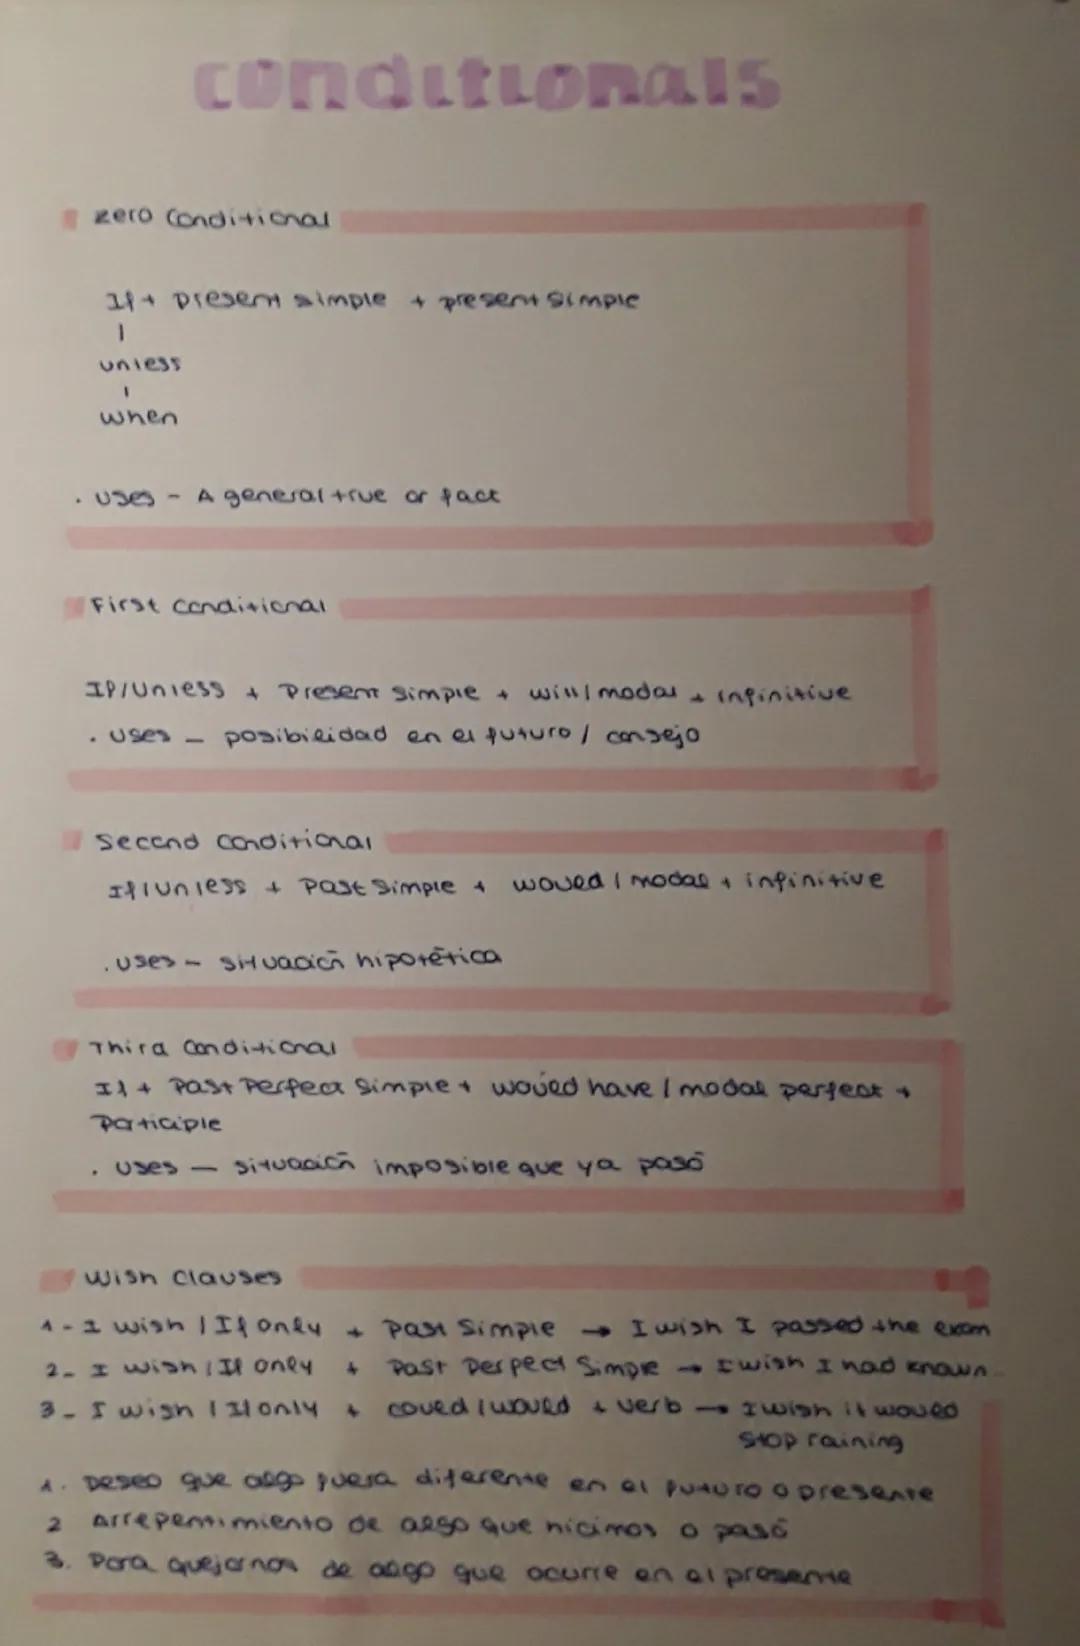 conditionals
zero Conditional
If + present simple + present simple
unless
when
. uses - A general true or fact
First Conditional
If/Unless + Present simple + will/modal + infinitive
. uses - posibilidad en el futuro / consejo
Second Conditional
If/Unless + Past Simple + would / modal + infinitive
. uses - situación hipotética
Third Conditional
If + Past Perfect Simple + would have / modal perfect +
Participle
. uses - situación imposible que ya pasó
Wish Clauses
1 - I wish / If only + Past Simple → I wish I passed the exam
2 - I wish / If only + Past Perfect Simple → I wish I had known
3 - I wish / If only + could / would + verb → I wish it would
stop raining
1. Deseo que algo fuera diferente en el futuro o presente
2 Arrepentimiento de algo que hicimos o pasó
3. Para quejarnos de algo que ocurre en el presente